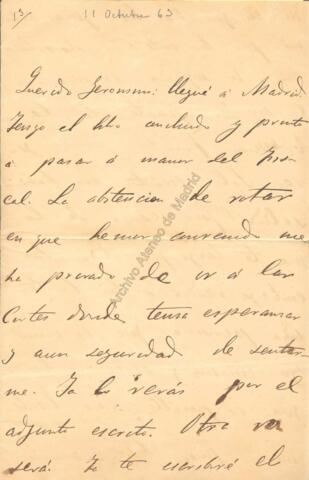 13
11 Octubre 63
Querido Jeronimo: llegué á Madrid.
Tengo el libro concluido y pronto
á pasar á manos del Fis-
cal. La abstencion de votar
en que hemos convenido me
ha privado de ir á las
Cortes donde tenia esperanzas
y aun seguridad de sentar-
me. Ya lo verás por el
adjunto escrito. Otra vez
será. Yo te escribiré el
Archivo Ateneo de Madrid